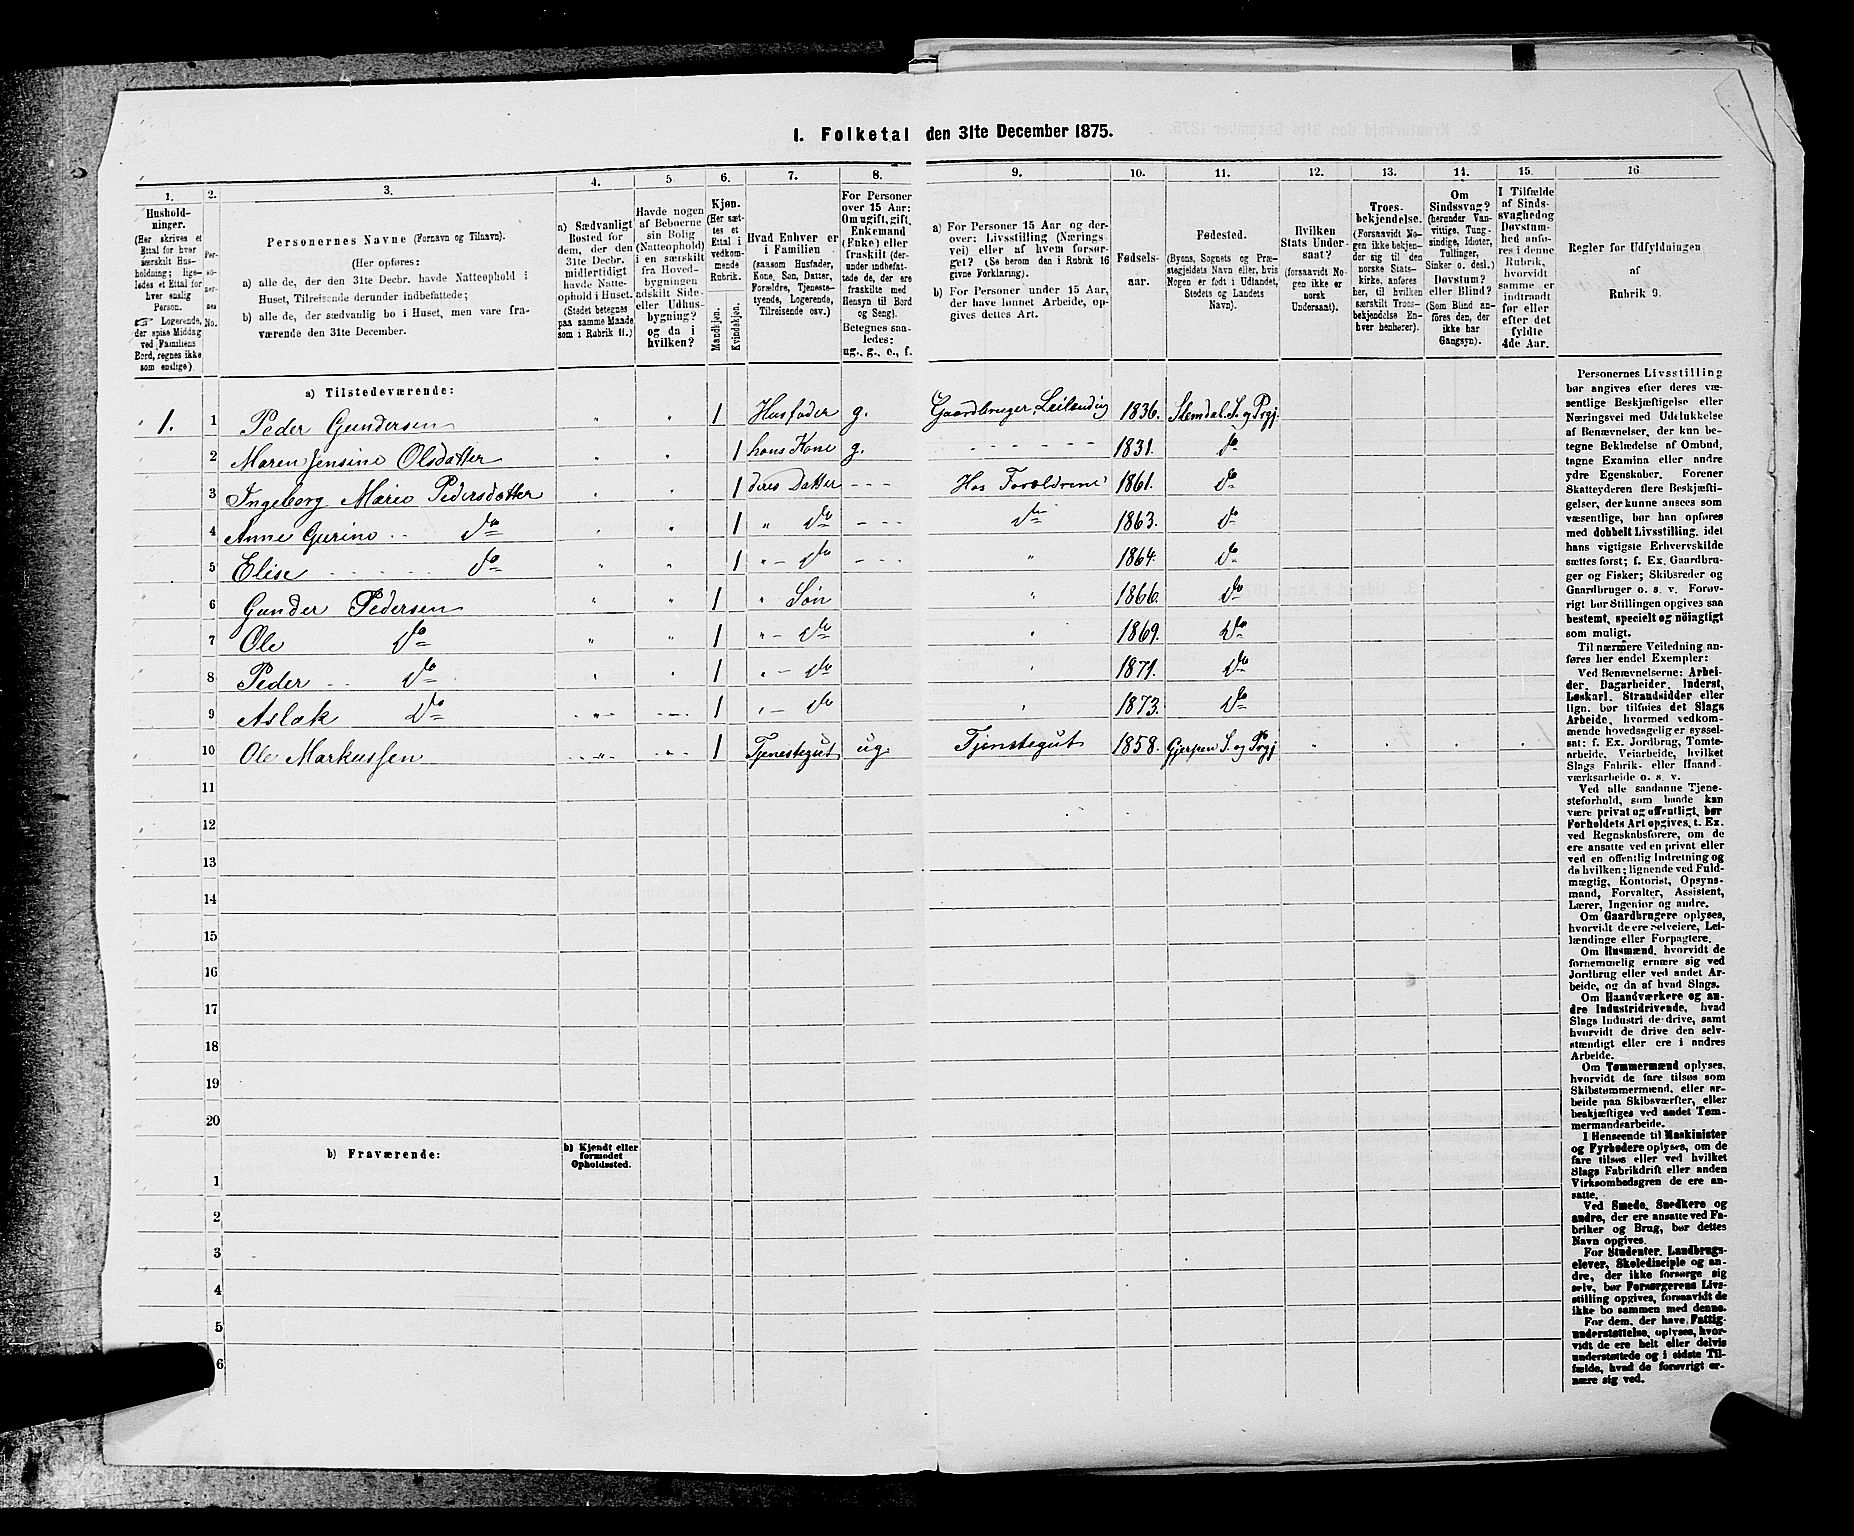 1. Folketal den 31te December 1875.
1. 2. 3. 4. 5. 6. 7. 8. 9. 10. 11. 12. 13. 14. 15. 16
Hushold-
ninger.
(Her skrives et
Ettal for hver
særskilt Hus-
holdning; lige-
ledes et Ettal for
hver enslig
Person.
☞ Logerende,
der spise Middag
ved Familiens
Bord, regnes ikke
som enslige).
Per-
so-
ner-
nes
No.
Personernes Navne (Fornavn og Tilnavn).
(Her opføres:
a) alle de, der den 31te Decbr. havde Natteophold i
Huset, Tilreisende derunder indbefattede;
b) alle de, der sædvanlig bo i Huset, men vare fra-
værende den 31te December.
a) Sædvanligt
Bosted for
dem, der den
31te Decbr.
midlertidigt
havde Natte-
ophold i Huset.
(Stedet betegnes
paa samme Maade
som i Rubrik 11.)
Havde nogen
af Beboerne
sin Bolig
(Natteophold)
i en særskilt
fra Hoved-
bygningen
adskilt Side-
eller Udhus-
bygning?
og da i
hvilken?
Kjøn.
(Her sæt-
tes et
Ettal i
vedkom-
mende
Rubrik.
Mandkjøn.
Kvindekjøn.
Hvad Enhver er
i Familien
(saasom Husfader,
Kone, Søn, Datter,
Forældre, Tjeneste-
tyende, Logerende,
Tilreisende osv.)
For Personer
over 15 Aar:
Om ugift, gift,
Enkemand
(Enke) eller
fraskilt (der-
under indbefat-
tede de, der ere
fraskilte med
Hensyn til Bord
og Seng).
Betegnes saa-
ledes:
ug., g., e., f.
a) For Personer 15 Aar og der-
over: Livsstilling (Nærings-
vei) eller af hvem forsør-
get? (Se herom den i Rubrik 16
givne Forklaring).
b) For Personer under 15 Aar,
der have lønnet Arbeide, op-
gives dettes Art.
Fødsels-
aar.
Fødested.
(Byens, Sognets og Præ-
stegjeldets Navn eller, hvis
Nogen er født i Udlandet,
Stedets og Landets
Navn).
Hvilken
Stats Under-
saat?
(forsaavidt No-
gen ikke er
norsk
Undersaat).
Troes-
bekjendelse.
(Forsaavidt No-
gen ikke bekjen-
der sig til den
norske Stats-
kirke, anføres
her, til hvilken
særskilt Troes-
bekjendelse En-
hver henhører).
Om
Sindssvag?
(herunder Van-
vittige, Tung-
sindige, Idioter,
Tullinger,
Sinker o. desl.)
Døvstum?
eller Blind?
(Som Blind an-
føres den, der
ikke har
Gangsyn).
I Tilfælde
af Sinds-
svaghed og
Døvstum-
hed anfø-
res i denne
Rubrik,
hvorvidt
samme er
indtraadt
før eller
efter det
fyldte
4de Aar.
Regler for Udfyldningen
af
Rubrik 9.
a) Tilstedeværende:
1. 1 Peder Gundersen " " 1 Husfader g. Gaardbruger, Leilending 1836. Slemdal S. og Prgj
2 Maren Jensine Olsdatter " " 1 hans Kone g. - - - - - - 1831. do
3 Ingeborg Marie Pedersdatter " " 1 deres Datter - - - Hos Forældrene 1861. do
4 Anne Gurine .. do " " 1 " do - - - do 1863. do
5 Elise - - - - - - do " " 1 " - do - - - " 1864. do
6 Gunder Pedersen " " 1 " Søn " 1866. do
7 Ole do " " 1 " - do " 1869. do
8 Peder .. do " " 1 " - do " 1871. do
9 Aslak do - " - - " - 1 " - do " 1873. do
10 Ole Markussen - " - - " - 1 Tjenestegut ug. Tjenestegut 1858. Gjerpen S. og Prgj " " " "
11
12
13
14
15
16
17
18
19
20
b) Fraværende:
b) Kjendt eller
formodet
Opholdssted.
1
2
3
4
5
6
Personernes Livsstilling
bør angives efter deres væ-
sentlige Beskjæftigelse eller
Næringsvei med Udelukkelse
af Benævnelser, der kun be-
tegne Beklædelse af Ombud,
tagne Examina eller andre
ydre Egenskaber. Forener
Skatteyderen flere Beskjæfti-
gelser, der kunne ansees som
væsentlige, bør han opføres
med dobbelt Livsstilling, idet
hans vigtigste Erhvervskilde
sættes først; f. Ex. Gaardbru-
ger og Fisker; Skibsreder og
Gaardbruger o. s. v. Forøv-
rigt bør Stillingen opgives saa
bestemt, specielt og nöiagtigt
som muligt.
Til nærmere Veiledning an-
føres her endel Exempler:
Ved Benævnelserne: Arbei-
der, Dagarbeider, Inderst,
Løskarl, Strandsidder eller
lign. bør tilføies det Slags
Arbeide, hvormed vedkom-
mende hovedsagelig er syssel-
sat; f. Ex. Jordbrug, Tomte-
arbeide, Veiarbeide, hvilket
Slags Fabrik- eller Haand-
værksarbeide o. s. v.
Ved alle saadanne Tjene-
steforhold, som baade kan
være privat og offentligt, bør
Forholdets Art opgives, t. Ex.
ved Regnskabsførere, om de
ere ansatte ved en privat eller
ved en offentlig Indretning og
da hvilken; lignende ved Fuld-
mægtig, Kontorist, Opsyns-
mand, Forvalter, Assistent,
Lærer, Ingeniør og andre.
Om Gaardbrugere oplyses,
hvorvidt de ere Selveiere, Lei-
lændinge eller Forpagtere.
Om Husmænd, hvorvidt de
fornemmelig ernære sig ved
Jordbrug eller ved andet Ar-
beide, og da af hvad Slags.
Om Haandværkere og an-
dre Industridrivende, hvad
Slags Industri de drive, samt
hvorvidt de drive den selv-
stændigt eller ere i andres
Arbeide.
Om Tømmermænd oplyses,
hvorvidt de fare tilsøs som
Skibstømmermænd, eller ar-
beide paa Skibsværfter, eller
beskjæftiges ved andet Tøm-
mermandsarbeide.
I Henseende til Maskinister
og Fyrbødere oplyses, om de
fare tilsøs eller ved hvilket
Slags Fabrikdrift eller anden
Virksomhedsgren de ere an-
satte.
Ved Smede, Snedkere og
andre, der ere ansatte ved Fa-
briker og Brug, bør dettes
Navn opgives.
For Studenter, Landbrugs-
elever, Skoledisciple og an-
dre, der ikke forsørge sig
selv, bør Forsørgerens Livs-
stilling opgives, forsaavidt de
ikke bo sammen med denne.
For dem, der have Fattig-
understøttelse, oplyses, hvor-
vidt de ere helt eller delvis
understøttede og i sidste Til-
fælde, hvad de forøvrigt er-
nære sig ved.